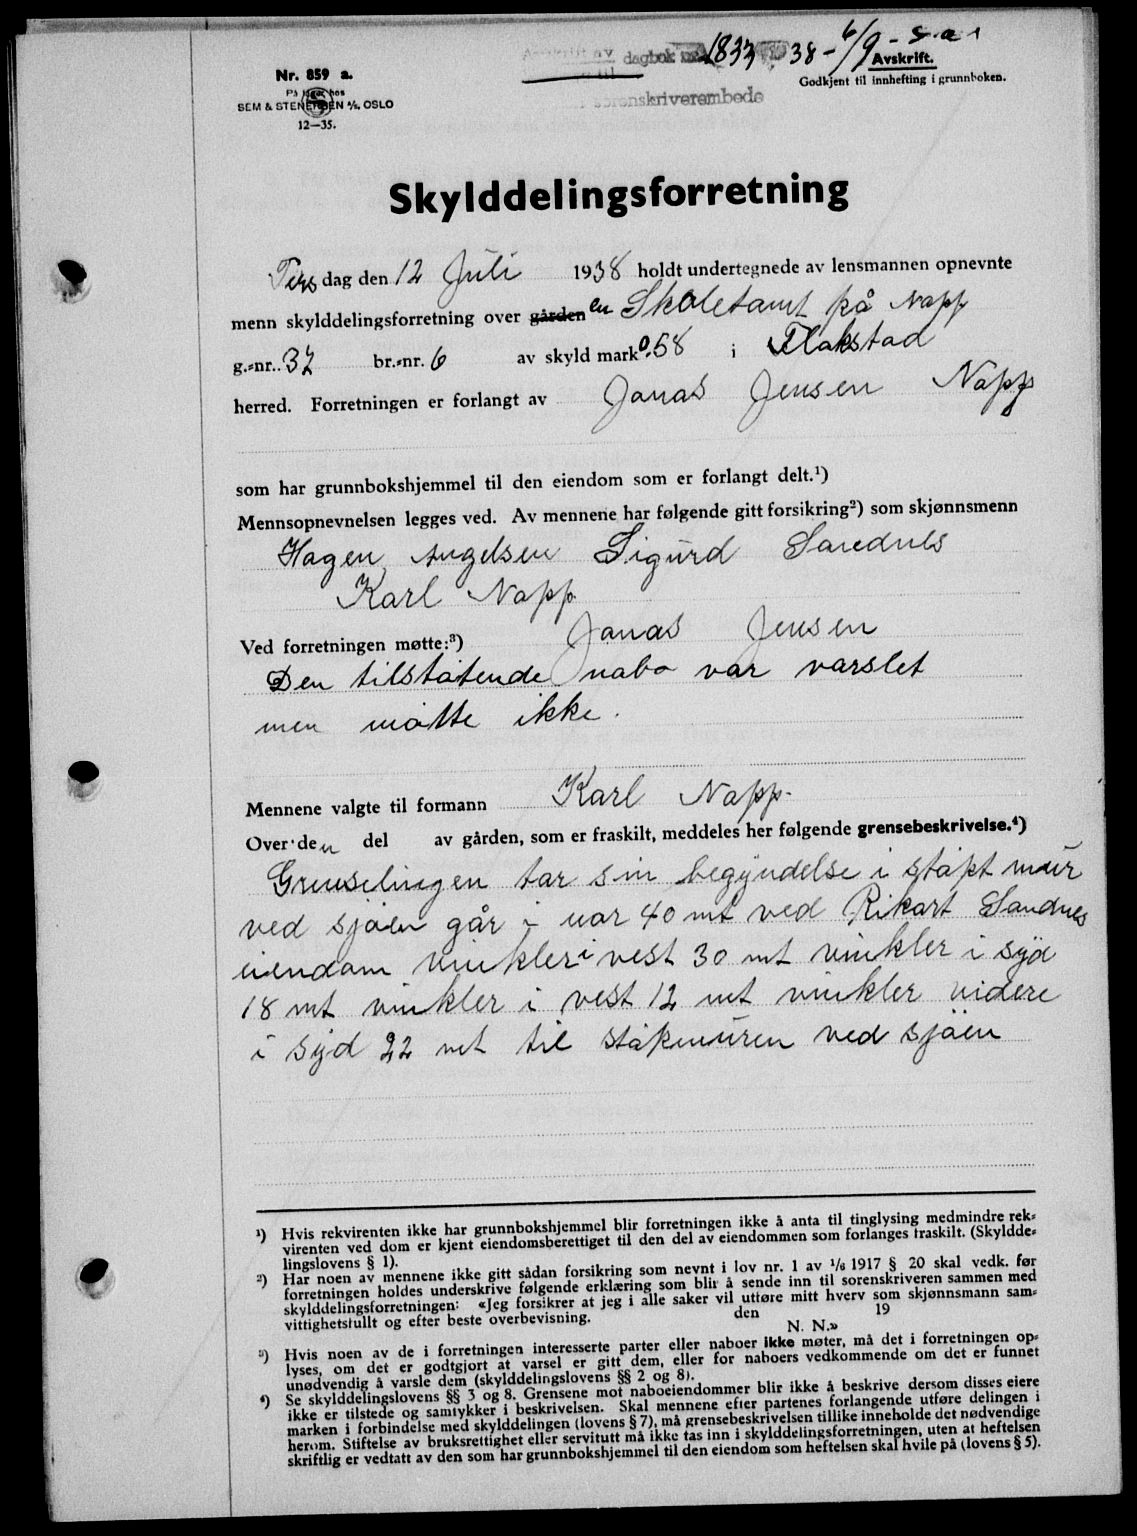 dagbok nr. 1833 1938 - 6/9 -
sorenskriverembede
Avskrift.
Godkjent til innhefting i grunnboken.
Nr. 859 a.
På lager hos
SEM & STENERSEN A/S, OSLO
12—35.
Skylddelingsforretning
Tirsdag den 12 Juli 1938 holdt undertegnede av lensmannen opnevnte
menn skylddelingsforretning over gården en Skoletomt på Napp
g.-nr. 37 br.-nr. 6 av skyld mark 0.58 i Flakstad
herred. Forretningen er forlangt av Jonas Jensen Napp
som har grunnbokshjemmel til den eiendom som er forlangt delt.¹)
Mennsopnevnelsen legges ved. Av mennene har følgende gitt forsikring²) som skjønnsmenn
Hagen Angelsen Sigurd Sandnes
Karl Napp
Ved forretningen møtte:³) Jonas Jensen
Den tilståtende nabo var varslet
men møtte ikke.
Mennene valgte til formann Karl Napp.
Over den del av gården, som er fraskilt, meddeles her følgende grensebeskrivelse.⁴)
Grenselinjen tar sin begyndelse i støpt mur
ved sjøen går i nor 40 mt ved Rikart Sandnes
eiendom vinkler i vest 30 mt vinkler i syd
18 mt vinkler i vest 12 mt vinkler videre
i syd 22 mt til støpmuren ved sjøen
¹) Hvis rekvirenten ikke har grunnbokshjemmel blir forretningen ikke å anta til tinglysing medmindre rek-
virenten ved dom er kjent eiendomsberettiget til den del av eiendommen som forlanges fraskilt. (Skyldde-
lingslovens § 1).
²) Har noen av mennene ikke gitt sådan forsikring som nevnt i lov nr. 1 av 1/6 1917 § 20 skal vedk. før
forretningen holdes underskrive følgende erklæring som blir å sende inn til sorenskriveren sammen med
skylddelingsforretningen: «Jeg forsikrer at jeg i alle saker vil utføre mitt hverv som skjønnsmann sam-
vittighetsfullt og efter beste overbevisning. den 19
N. N.»
³) Hvis noen av de i forretningen interesserte parter eller naboer ikke møter, må det i forretningen op-
lyses, om det er godtgjort at varsel er gitt dem, eller for naboers vedkommende om det er funnet
unødvendig å varsle dem (skylddelingslovens §§ 2 og 8).
⁴) Se skylddelingslovens §§ 3 og 8. Grensene mot naboeiendommer blir ikke å beskrive dersom disses eiere
ikke er tilstede og samtykker i beskrivelsen. Skal mennene efter partenes forlangende utføre delingen i
marken i forbindelse med skylddelingen (lovens § 7), må grensebeskrivelsen tillike inneholde det nødvendige
herom. Stiftelse av bruksrettighet eller servitutt må ikke tas inn i skylddelingsforretningen, uten at heftelsen
skriftlig er vedtatt av den som har grunnbokshjemmel til den eiendom som heftelsen skal hvile på (lovens § 5).